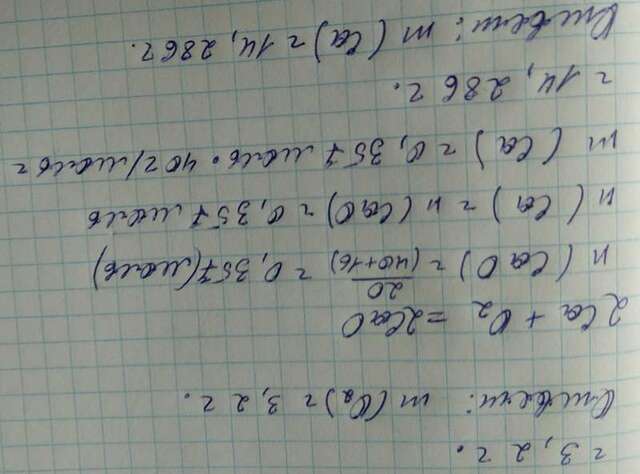 = 3,2 г.
Ответ: m(O₂) = 3,2 г.
2Ca + O₂ = 2CaO
n(CaO) = 20/(40+16) = 0,357(моль)
n(Ca) = n(CaO) = 0,357 моль
m(Ca) = 0,357 моль · 40 г/моль =
= 14,286 г.
Ответ: m(Ca) = 14,286 г.